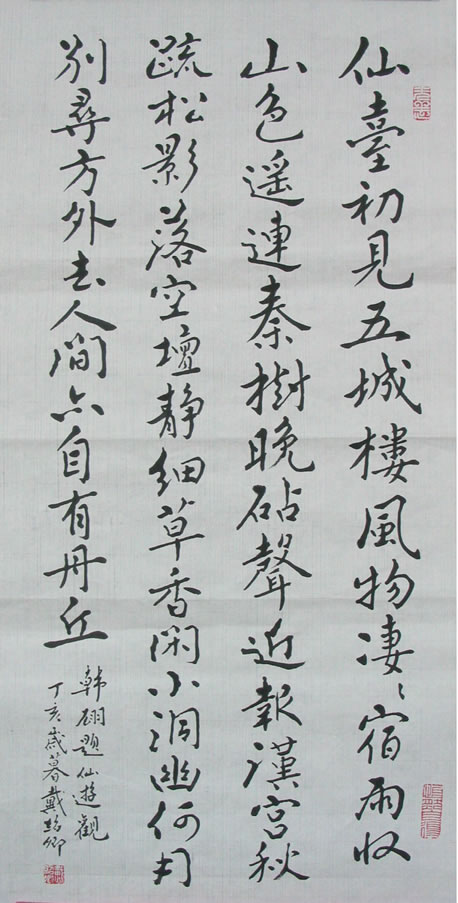 仙臺初見五城樓風物凄〻宿雨收
山色遥連秦樹晚砧聲近報漢宮秋
疏松影落空壇靜細草香閑小洞幽何用
別尋方外去人間亦自有丹丘
韓翃題仙遊觀
丁亥歲暮戴卿